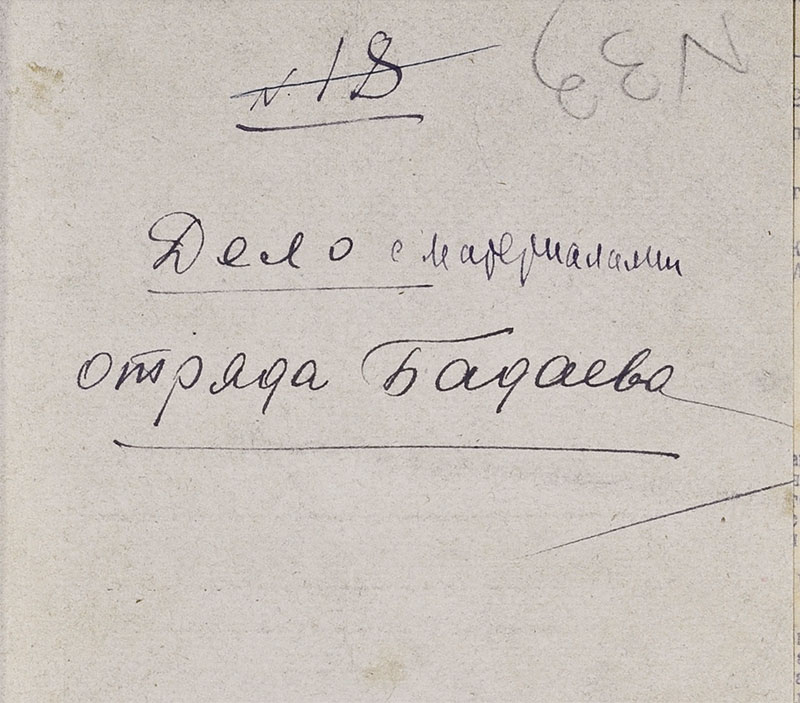 N. 18
N 39
Дело с материалами
отряда Бадаева